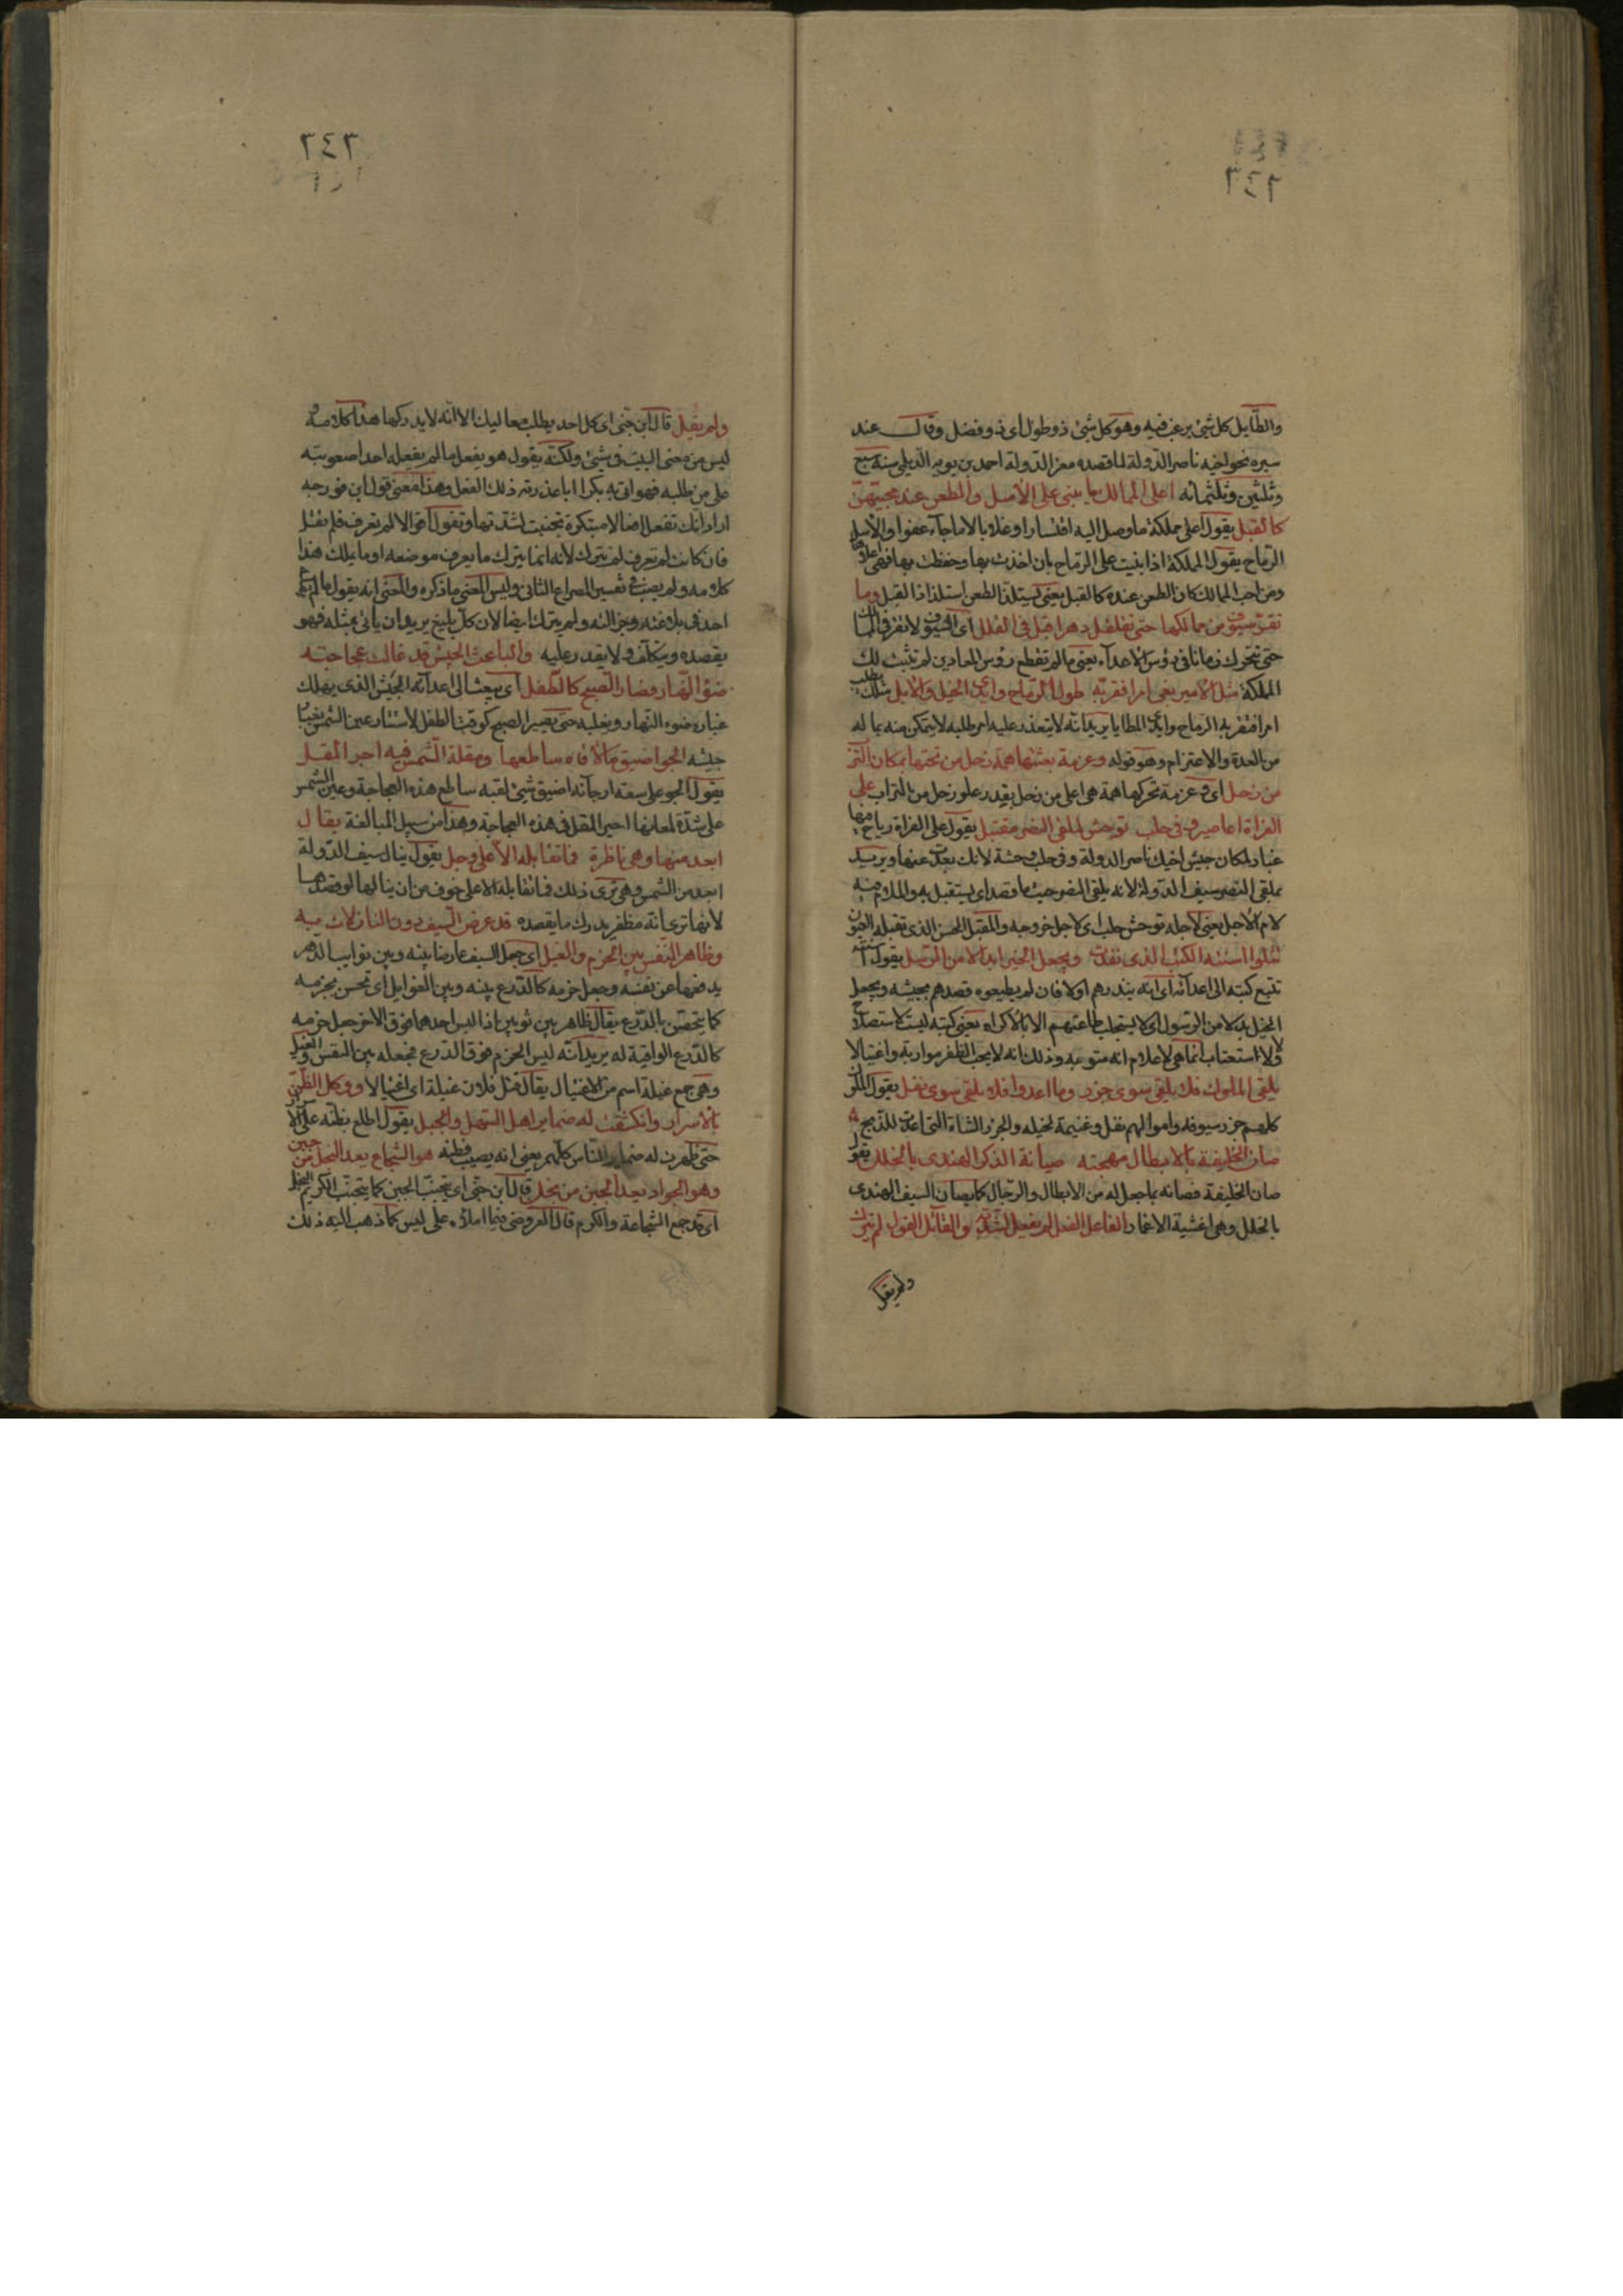 والطّايل كل شئ يرغب فيه وهو كل شئ ذو طول اى ذو فضل وقال عند
سيره نحو اخيه ناصر الدولة لما قصده معز الدّولة احمد بن بويه الديلمى سنة سبع
وثلثين وثلثمائه اعلى الممالك ما يبنى على الأسل والطعن عند محبيهنّ
كالقبل يقول اعلى مملكة ما وصل اليه اقتسارا وغلابا لا ما جآء عفوا والأسل
الرماح يقول المملكة اذا بنيت على الرماح بان اخذت بها وحفظت بها فهى اعلاها
ومن احب الممالك كان الطعن عنده كالقبل يعنى يستلذ الطعن استلذاذ القبل وما
تقرّ سيوف من ممالكها حتى تقلقل دهرا قبل فى القلل اى السيوف لا تقر فى الممالك
حتى تتحرك زمانا فى رؤس الأعدآء يعنى ما لم تقطع رؤس المعادين لم تثبت لك
المملكة مثل الأمير بغى امرا فقربّه طول الرماح وايدى الخيل والأبل مثلك يطلب
امرا فقربه الرماح وايدى المطايا يريد انه لا يتعذر عليه امر طلبه لا يتمكن منه بما له
من العدة والاعتزام وهو قوله وعزمة بعثتها همة زحل من تحتها بمكان الترب
من زحل اى وعزمة تحركها همة هى اعلى من زحل بقدر علو زحل من التراب على
الفراة اعاصير وفى حلب توحش لملقى النصر مقتبل يقول على الفراة رياح
غبار لمكان جيش اخيك ناصر الدولة وفى حلب وحشة لانك بعدت عنها ويريد
بملقى النصر سيف الدولة لانه يلقى النصر حيث ما قصد اى يستقبل به واللام فيه
لام الأجل يعنى لاجله توحش حلب اى لاجل خروجه والمقتبل الحسن الذى تقبله العيون
تتلوا اسنته الكتب الذى نفذت ويجعل الخيل ابدالا من الرسل يقول اسنته
تتبع كتبه الى اعدآئه اى انه ينذرهم اولا فان لم يطيعوه قصدهم بجيشه ويجعل
الخيل بدلا من الرسول اى لا يستجلب طاعتهم الا بالأكراه يعنى كتبه ليست لاستصلاح
ولا استعتاب انما هى لاعلام انه متوجه وذلك انه لا يحب الظفر مواربة واغتيالا
يلقى الملوك فلا يلقى سوى جزر وما اعدوا فلا يلقى سوى نفل يقول الملوك
كلهم جزر سيوفه واموالهم نفل وغنيمة لخيله والجزر الشاة التى اعدت للذبح
صان الخليفة بالابطال مهجته صيانة الذكر الهندى بالخلل يقول
صان الخليفة فصانه بما جعل له من الابطال والرجال كما يصان السيف الهندى
بالخلل وهى اغشية الاغماد الفاعل الفعل لم يفعل لشدّته والقائل القول لم يترك
ولم يقل
٢٤٢
ولم يقل قال ابن جنى اى كل احد يطلب معاليك الا انه لا يدركها هذا كلامه و
ليس من معنى البيت فى شئ ولكنّه يقول هو يفعل ما لم يفعله احد لصعوبته
على من طلبه فهو اتى به بكرا اباعذرته ذلك الفعل وهذا معنى قول ابن فورجه
اراد انك تفعل افعالا مبتكرة تجنبت لشدتها وتقول اقوالا لم تعرف فلم تقل
فان كانت لم تعرف لم تترك لانه انما يترك ما يعرف موضعه او ما يملك هذا
كلامه ولم يصب فى تفسير المصراع الثانى وليس المعنى ما ذكره والمعنى انه يقول ما لم يقله
احد فى بلاغته وجزالته ولم يترك ايضا لان كل بليغ يريد ان يأتى بمثله فهو
يقصده ويتكلّف ولا يقدر عليه والباعث الجيش قد غالت عجاجته
ضوء النّهار فصار الصبح كالطّفل اى يبعث الى اعدآئه الجيش الذى يهلك
غباره ضوء النهار ويغلبه حتى يصير الصبح كوقت الطفل لاستتار عين الشمس بغبار
جيشه الجو اضيق ما لاقاه ساطعها ومقلة الشّمس فيه احير المقل
يقول الجو على سعة ارجآئه اضيق شئ لقيه ساطع هذه العجاجة وعين الشمس
على شدّة لمعانها احير المقل فى هذه العجاجة وهذا من سبيل المبالغة ينال
ابعد منها وهى ناظرة فما تقابله الا على وجل يقول ينال سيف الدّولة
ابعد من الشمس وهى ترى ذلك فما تقابله الا على خوف من ان ينالها لو قصدها
لانها ترى انه مظفر يدرك ما يقصده قد عرض السيف دون النازلات به
وظاهر النفس بين الحزم والغيل اى جعل السيف عارضا بينه وبين نوايب الدّهر
يدفعها عن نفسه وجعل حزمه كالدّرع بينه وبين الغوايل اى تحصن بحزمه
كما يتحصن بالدّرع يقال ظاهر بين ثوبين اذا لبس احدهما فوق الاخر جعل حزمه
كالدّرع الواقية له يريد انّه لبس الحزم فوق الدرع فجعله بين النفس والغيل
وهى جمع غيلة اسم من الاغتيال يقال قتل فلان غيلة اى اغتيالا ووكل الظّن
بالاسرار وانكشفت له ضماير اهل السّهل والجبل يقول اطلع بظنه على الاسرار
حتى ظهرت له ضماير النّاس كلهم يعنى انه يصيب فى ظنه هو الشجاع يعد البخل من جبن
وهو الجواد يعد الجبن من بخل قال ابن جنى اى يتجنّب الجبن كما يتجنّب الكريم البخل
اى قد جمع الشجاعة والكرم قال العروضى فيما املاه على ليس كما ذهب اليه ذلك